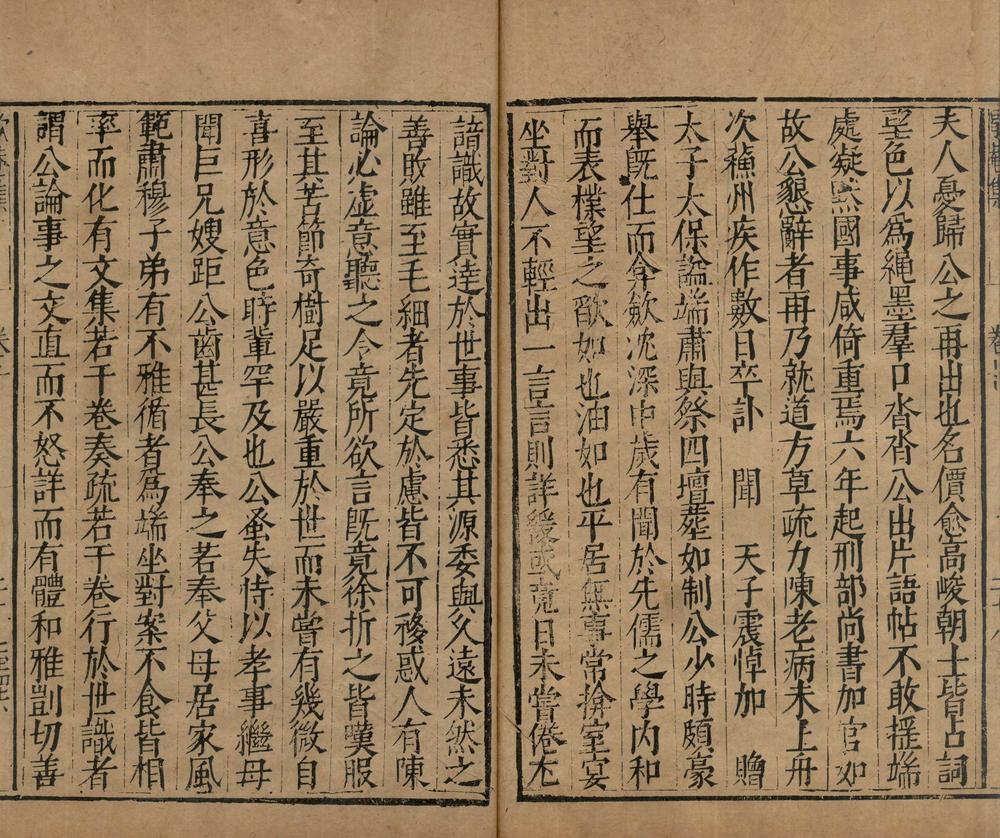 夫人憂歸公之再出也名價愈高峻朝士皆占詞
望色以爲繩墨羣口沓沓公出片語帖不敢揺端
處凝然國事咸倚重焉六年起刑部尚書加官如
故公懇辭者再乃就道方草疏力陳老病未上舟
次蘓州疾作數日卒訃 聞 天子震悼加 贈
太子太保謚端肅與祭四壇塟如制公少時頗豪
舉旣仕而弇歛沈深中歲有聞於先儒之學内和
而表樸望之歙如也油如也平居無事常揜室宴
坐對人不輕出一言言則詳緩或竟日未嘗倦尤
諳識故實逹於世事皆悉其源委與夫遠未然之
善敗雖至毛細者先定於慮皆不可移惑人有陳
論必虚意聽之令竟所欲言旣竟徐折之皆嘆服
至其苦節奇樹足以嚴重於世而未嘗有幾微自
喜形於意色時輩罕及也公蚤失恃以孝事繼母
聞巨兄嫂距公齒甚長公奉之若奉父母居家風
範肅穆子弟有不雅循者爲端坐對案不食皆相
率而化有文集若干卷奏疏若干卷行於世識者
謂公論事之文直而不怒詳而有體和雅剴切善